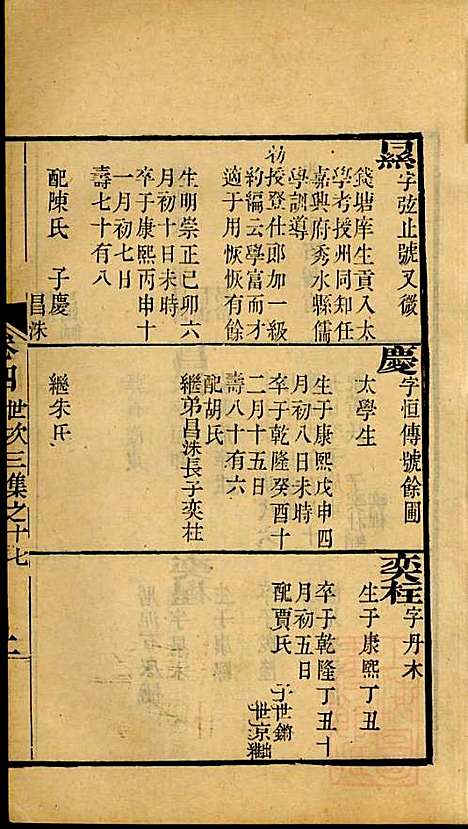 字弦止號又微
錢塘庠生貢入太
學考授州同知任
嘉興府秀水縣儒
學訓導
初授登仕郎加一級
約編云學富而才
適于用恢恢有餘
生明崇正己卯六
月初十日未時
卒于康熙丙申十
一月初七日
壽七十有八
配陳氏 子慶
昌洙
慶 字恒傳號餘圃
太學生
生于康熙戊申四
月初八日未時
卒于乾隆癸酉十
二月十五日
壽八十有六
配胡氏
繼弟昌洙長子奕柱
繼朱氏
奕柱 字丹木
生于康熙丁丑
卒于乾隆丁丑十
月初五日
配賈氏 子世鏘
世京出繼
卷四 世次三集之十七